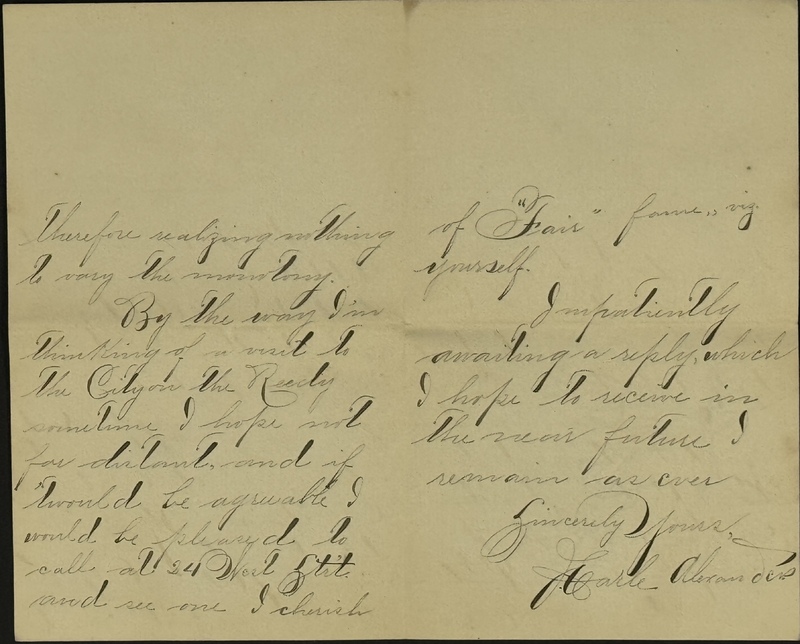 therefore realizing nothing
to vary the monotony.
By the way I'm
thinking of a visit to
the City on the Reedy
sometime I hope not
far distant, and if
'twould be agreeable I
would be pleased to
call at 24 West Str't.
and see one I cherish
of "Fair" fame, viz.
yourself.
Impatiently
awaiting a reply, which
I hope to receive in
the near future I
remain as ever
Sincerely Yours,
Alexander